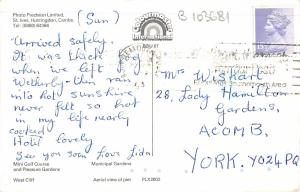 Photo Precision Limited,
St. Ives, Huntingdon, Cambs.
Tel: (0480) 64364
(Sun)
colourmaster
B 103681
Arrived safely.
It was thick fog
when we left
Wetherby, then ran
into hot sunshine
never felt so hot
in my life nearly
cooked
Hotel lovely
See you soon love Lida
Mrs Wishart
28, Lady Hamilton
Gardens,
ACOMB,
YORK. YO2 4PQ
Mini Golf Course
and Pleasure Gardens
Municipal Gardens
West Cliff
Aerial view of pier
PLX2603